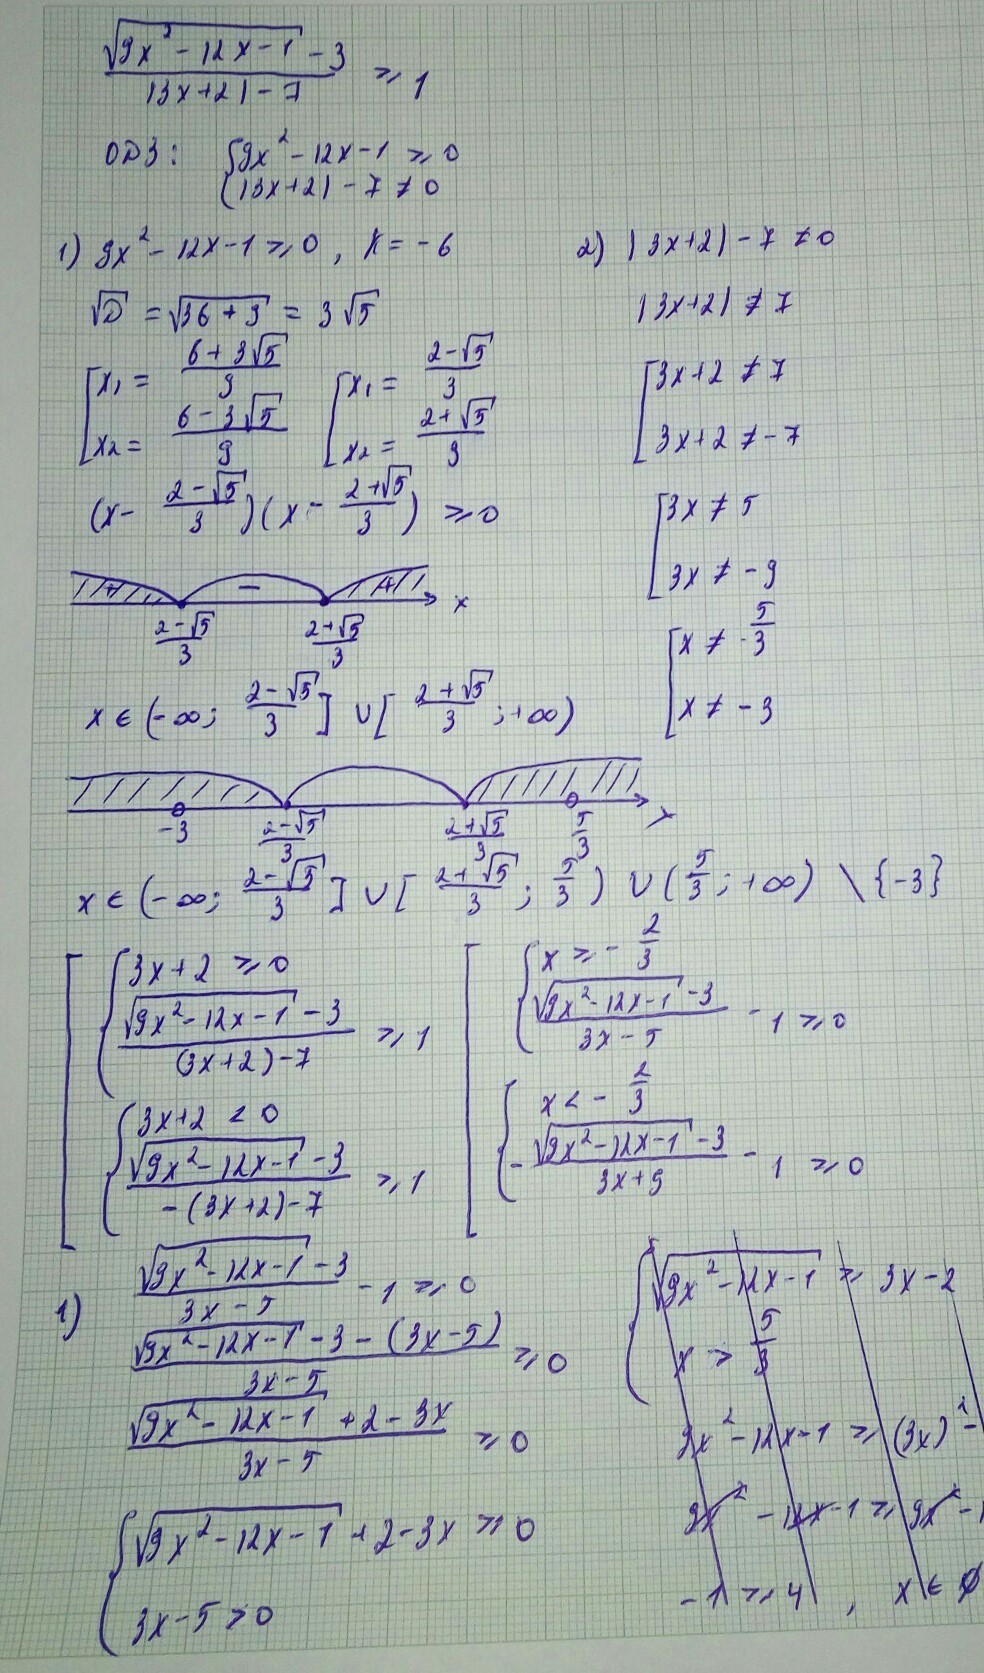 √(9x² - 12x - 1) - 3 / |3x+2| - 7 ≥ 1
ОДЗ: { 9x² - 12x - 1 ≥ 0
{ |3x+2| - 7 ≠ 0
1) 9x² - 12x - 1 ≥ 0, k = -6
√D = √(36+9) = 3√5
[ x₁ = (6+3√5)/9 [ x₁ = (2-√5)/3
[ x₂ = (6-3√5)/9 [ x₂ = (2+√5)/3
(x - (2-√5)/3)(x - (2+√5)/3) ≥ 0
+ - + x
(2-√5)/3 (2+√5)/3
x ∈ (-∞; (2-√5)/3] ∪ [(2+√5)/3; +∞)
2) |3x+2| - 7 ≠ 0
|3x+2| ≠ 7
[ 3x+2 ≠ 7
[ 3x+2 ≠ -7
[ 3x ≠ 5
[ 3x ≠ -9
[ x ≠ 5/3
[ x ≠ -3
-3 (2-√5)/3 (2+√5)/3 5/3 x
x ∈ (-∞; (2-√5)/3] ∪ [(2+√5)/3; 5/3) ∪ (5/3; +∞) \ {-3}
[ { 3x+2 ≥ 0
{ (√(9x² - 12x - 1) - 3)/((3x+2) - 7) ≥ 1
{ 3x+2 < 0
{ (√(9x² - 12x - 1) - 3)/(-(3x+2) - 7) ≥ 1
[ { x ≥ -2/3
{ (√(9x² - 12x - 1) - 3)/(3x - 5) - 1 ≥ 0
{ x < -2/3
{ -(√(9x² - 12x - 1) - 3)/(3x+9) - 1 ≥ 0
1) (√(9x² - 12x - 1) - 3)/(3x - 5) - 1 ≥ 0
(√(9x² - 12x - 1) - 3 - (3x - 5))/(3x - 5) ≥ 0
(√(9x² - 12x - 1) + 2 - 3x)/(3x - 5) ≥ 0
{ √(9x² - 12x - 1) + 2 - 3x ≥ 0
{ 3x - 5 > 0
{ √(9x² - 12x - 1) ≥ 3x - 2
{ x > 5/3
9x² - 12x - 1 ≥ (3x)² -
9x² - 12x - 1 ≥ 9x² - 1
-1 ≥ 4, x ∈ ∅